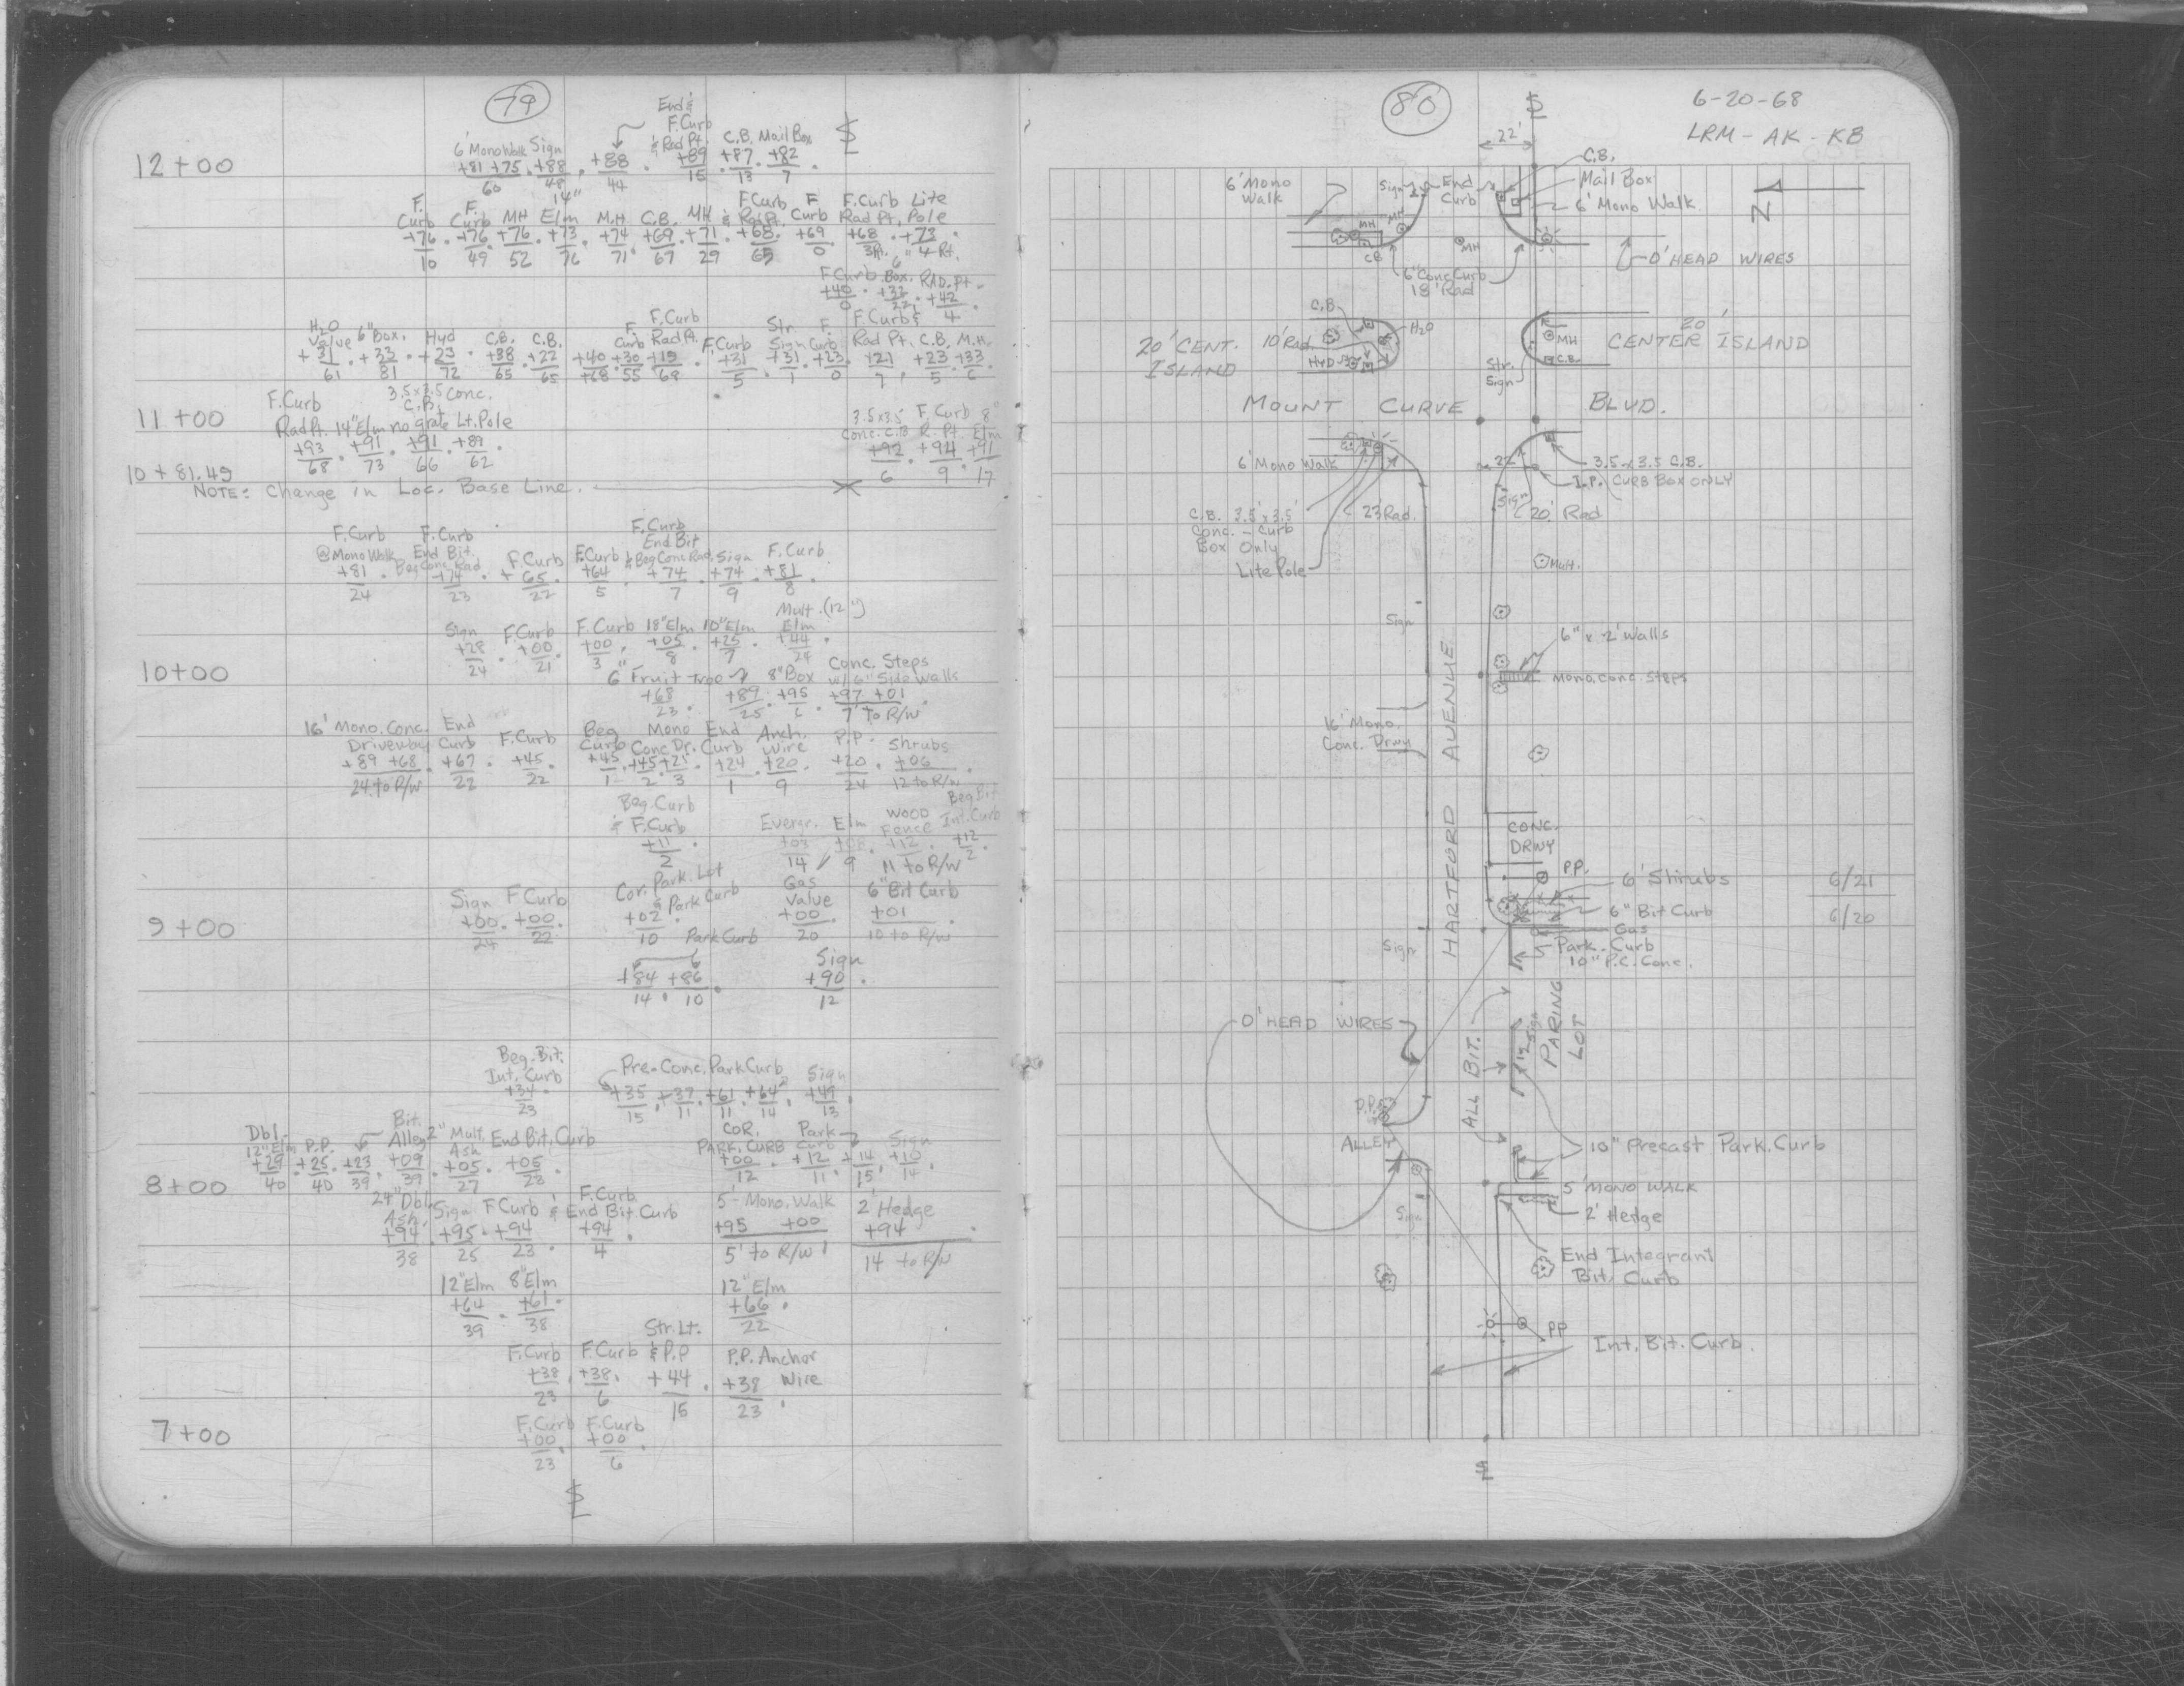 79
12+00
End &
F. Curb
& Rad Pt.
6' Mono Walk Sign C.B. Mail Box
+81 +75 +88 +88 +89 +87 +82
60 48 44 15 13 7
F. Curb F. Curb MH 14" Elm M.H C.B. MH F Curb & Rad Pt. F Curb F. Curb Rad Pt. Lite Pole
+76 +76 +76 +73 +74 +69 +71 +68 +69 +68 +73
10 49 52 76 71 67 29 65 0 3 Rt. 4 Rt.
F Curb 6" Box RAD. Pt.
+40 +33 +42
0 22 4
H2O Valve 6" Box Hyd C.B. C.B. F. Curb F. Curb Rad Pt. F Curb Str. Sign F. Curb F. Curb & Rad Pt. C.B. M.H.
+31 +33 +23 +38 +22 +40 +30 +19 +31 +31 +23 +21 +23 +33
61 81 72 65 65 +68 55 69 5 1 0 7 5 6
11+00
F. Curb 3.5x3.5 Conc. C.B.
Rad Pt. 14" Elm no grate Lt. Pole
+93 +91 +91 +89
68 73 66 62
3.5x3.5 F. Curb 8"
Conc. C.B R. Pt. Elm
+92 +94 +91
6 9 17
10+81.49
NOTE: Change in Loc. Base Line.
F. Curb F. Curb F. Curb
@ Mono Walk End Bit. F. Curb F. Curb End Bit Sign F. Curb
Beg Conc Rad. & Beg Conc Rad.
+81 +74 +65 +64 +74 +74 +81
24 23 22 5 7 9 8
Sign F. Curb F. Curb 18" Elm 10" Elm Mult. (12") Elm
+28 +00 +00 +05 +25 +44
24 21 3 8 7 24
10+00
6" Fruit Tree 8" Box Conc. Steps w/ 6" Side Walls
+68 +89 +95 +97 +01
23 25 6 7 to R/W
16' Mono. Conc. Driveway End Curb F. Curb Beg Curb Mono Conc Dr. End Curb Anch. Wire P.P. Shrubs
+89 +68 +67 +45 +45 +45 +21 +24 +20 +20 +06
24 to R/W 22 22 1 2 3 1 9 24 12 to R/W
Beg. Curb & F. Curb Evergr. Elm Wood Fence Beg Bit Int. Curb
+11 +03 +08 +12 +12
2 14 9 11 to R/W 2
9+00
Sign F Curb Cor. Park. Lot & Park Curb Gas Valve 6" Bit Curb
+00 +00 +02 +00 +01
24 22 10 20 10 to R/W
Park Curb Sign
+84 +86 +90
14 10 12
Beg. Bit. Int. Curb Pre-Conc. Park Curb Sign
+34 +35 +37 +61 +64 +49
23 15 11 11 14 13
Dbl. 12" Elm P.P. Bit. Alley 2" Mult. Ash End Bit. Curb COR. PARK. CURB Park Curb Sign
+29 +25 +23 +09 +05 +05 +00 +12 +14 +10
40 40 39 39 27 23 12 11 15 14
8+00
24" Dbl. Ash. Sign F Curb F. Curb & End Bit Curb 5' Mono. Walk 2' Hedge
+94 +95 +94 +94 +95 +00 +94
38 25 23 4 5' to R/W 14 to R/W
12" Elm 8" Elm 12" Elm
+64 +61 +66
39 38 22
F. Curb F. Curb Str. Lt. & P.P P.P. Anchor Wire
+38 +38 +44 +38
23 6 15 23
7+00
F. Curb F. Curb
+00 +00
23 6
80
6-20-68
LRM - AK - KB
22'
C.B.
Mail Box
6' Mono Walk
6' Mono Walk
Sign
End Curb
N
MH
MH
MH
CB
O'HEAD WIRES
6" Conc Curb
18' Rad
C.B.
10' Rad
H2O
HYD
20' CENT. ISLAND
MH
C.B.
20'
CENTER ISLAND
Str. Sign
MOUNT CURVE BLVD.
6' Mono Walk
22'
3.5 x 3.5 C.B.
I.P. CURB BOX ONLY
Sign
20' Rad
23' Rad.
C.B. 3.5' x 3.5'
Conc. - Curb
Box Only
Lite Pole
Mult.
Sign
6" x 2' Walls
Mono. conc. Steps
HARTFORD AVENUE
16' Mono.
Conc. Drwy
CONC.
DRWY
P.P.
6' Shrubs
6/21
6" Bit Curb
6/20
Gas
Sign
Park. Curb
10" P.C. Conc.
O'HEAD WIRES
ALL BIT.
Sign
PARING LOT
P.P.
ALLEY
10" Precast Park. Curb
5' MONO WALK
2' Hedge
Sign
End Integrant
Bit. Curb
PP
Int. Bit. Curb.